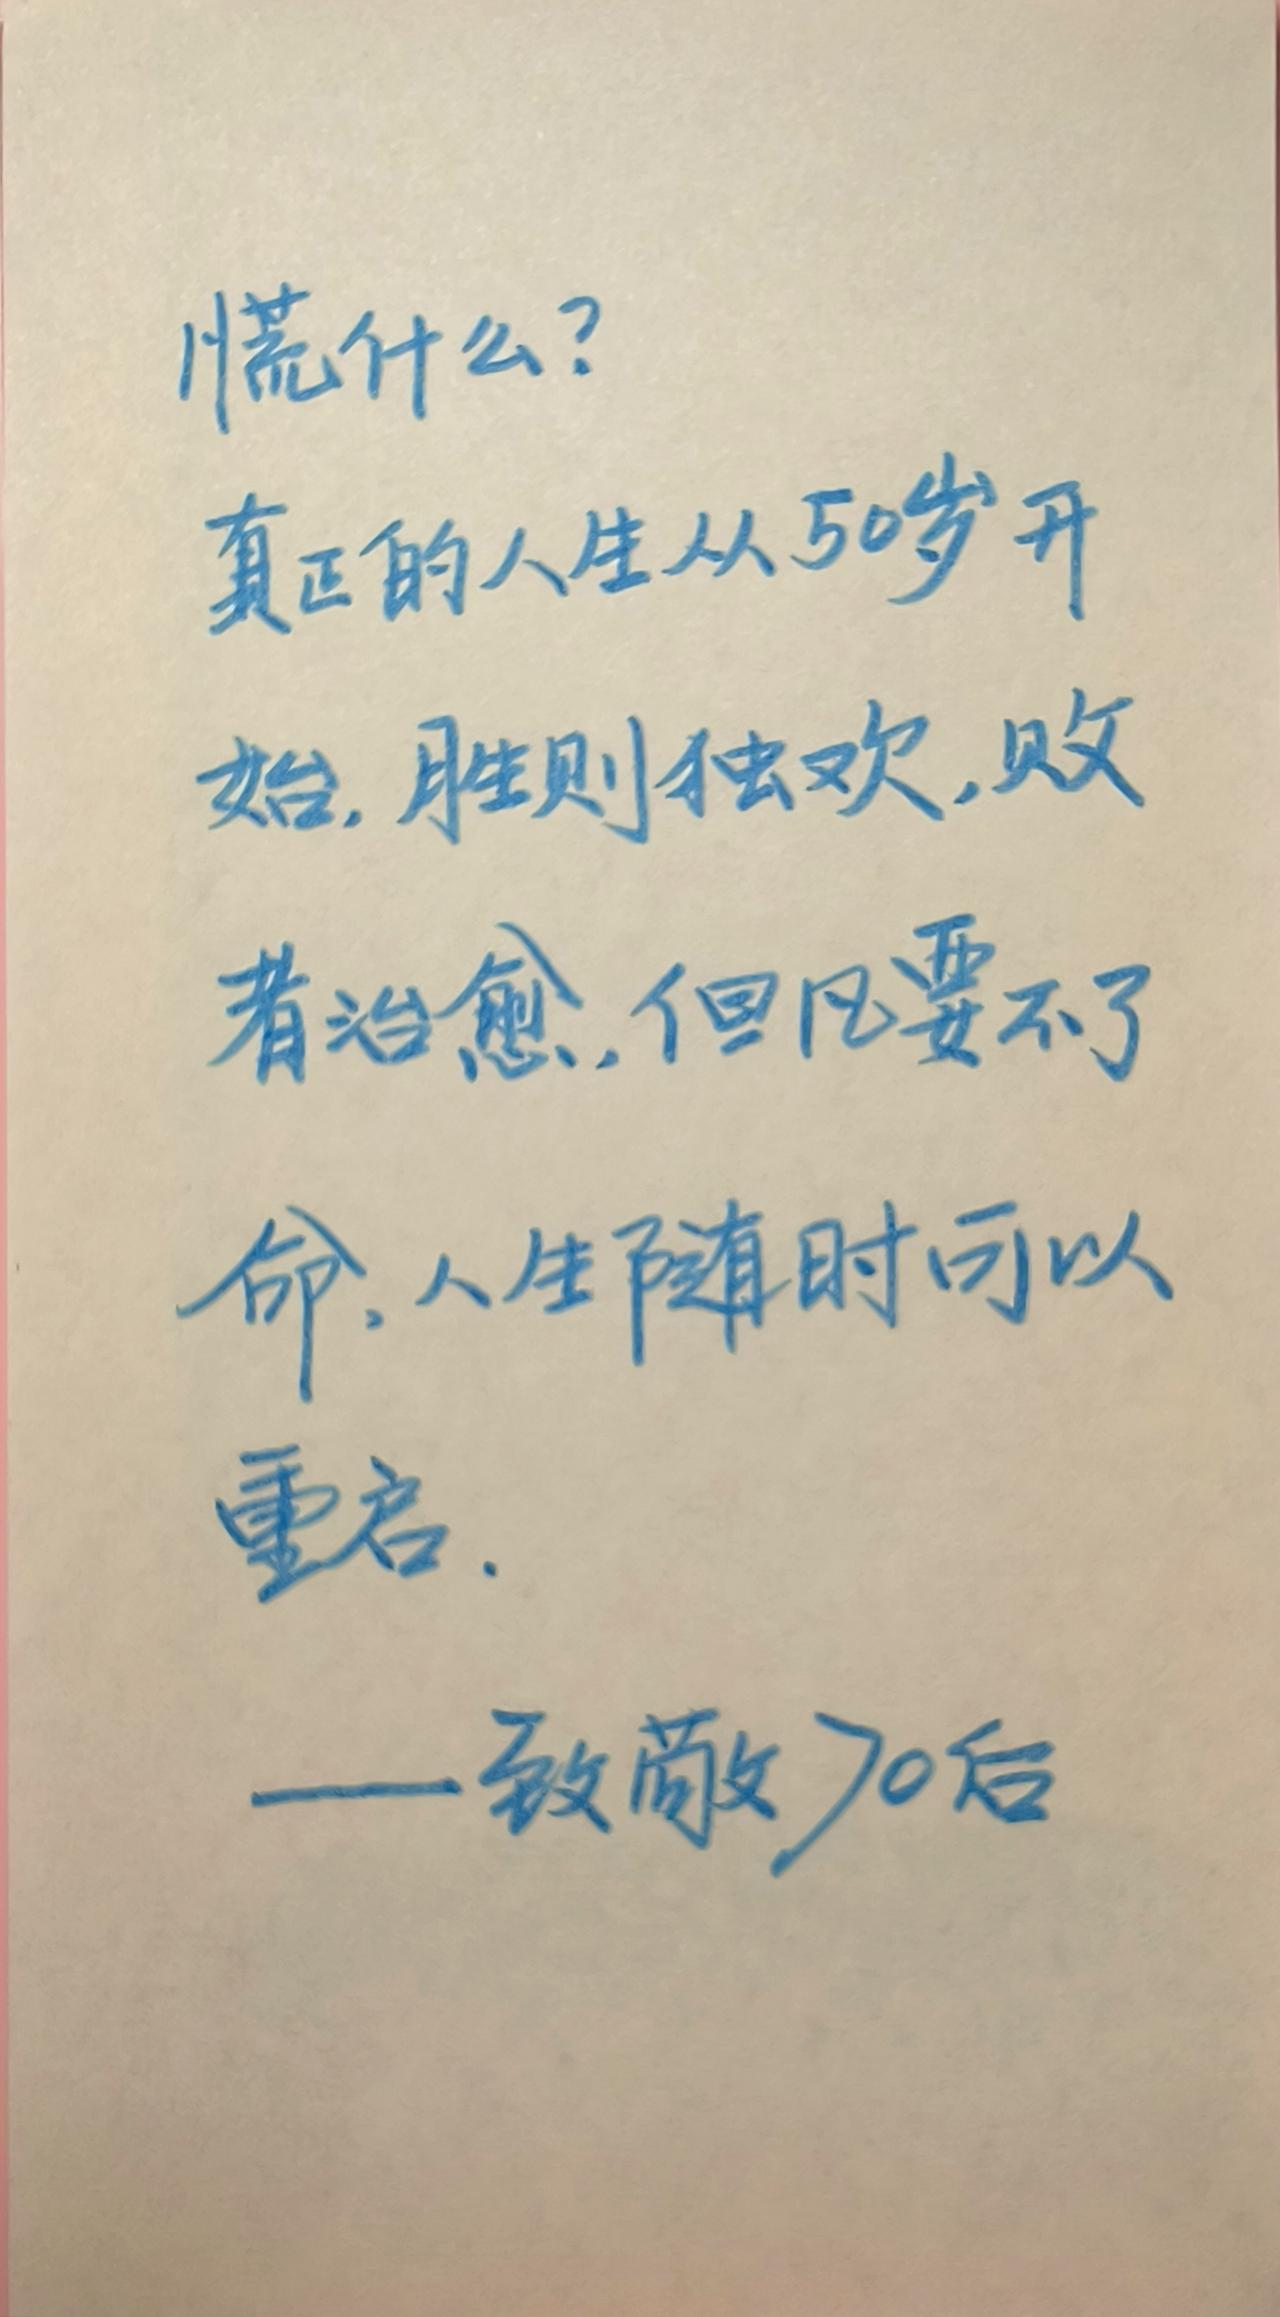 慌什么？
真正的人生从50岁开
始,胜则独欢,败
者治愈,但凡要不了
命,人生随时可以
重启.
——致敬70后